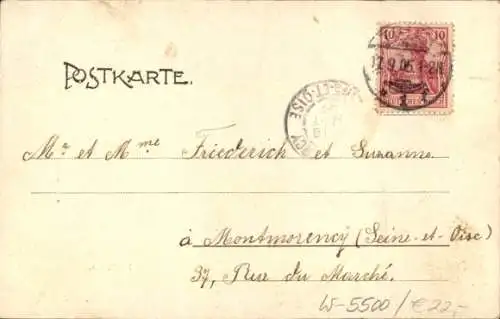 10 10
17.9.05. 1-2N
POSTKARTE.
ET-OISE
Mr et Mme Friederich et Suzanne.
à Montmorency (Seine-et-Oise)
37, Rue du Marché.
W-5500/€22,-